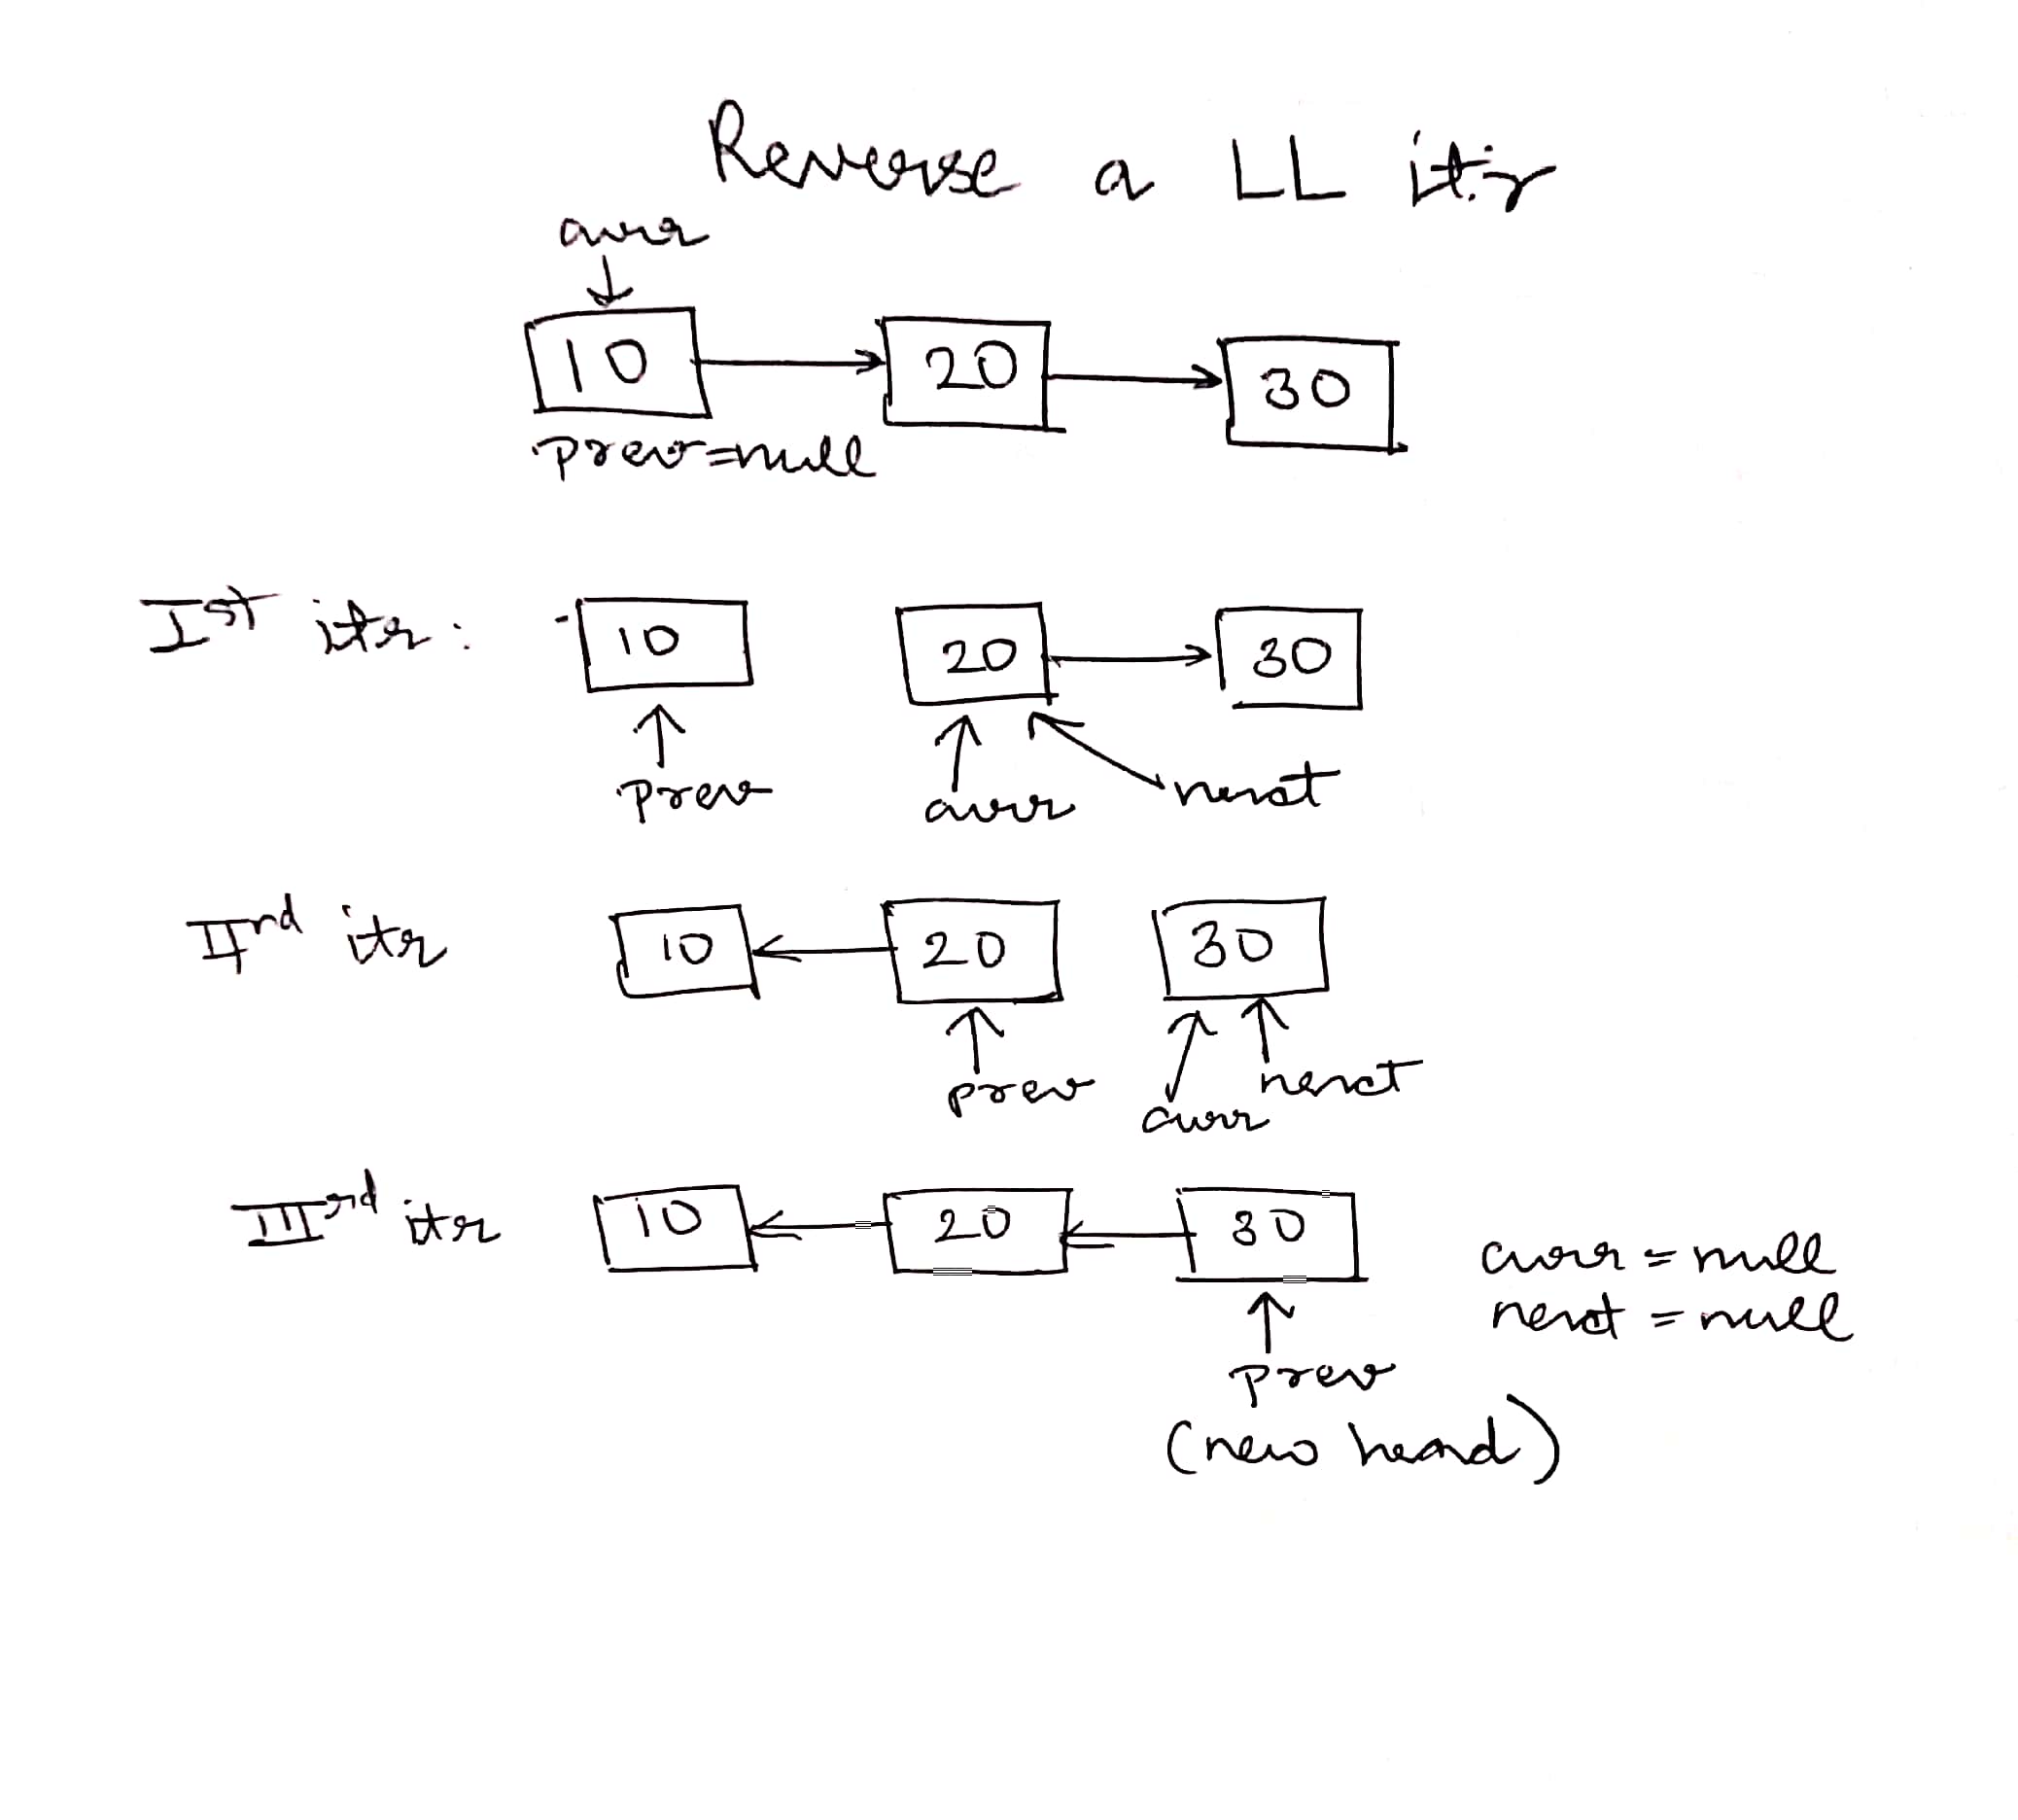 Reverse a LL itr
curr
10 20 30
prev=null
Ist itr: 10 20 30
prev curr next
IInd itr 10 20 30
prev curr next
IIIrd itr 10 20 30
curr = null
next = null
prev
(new head)